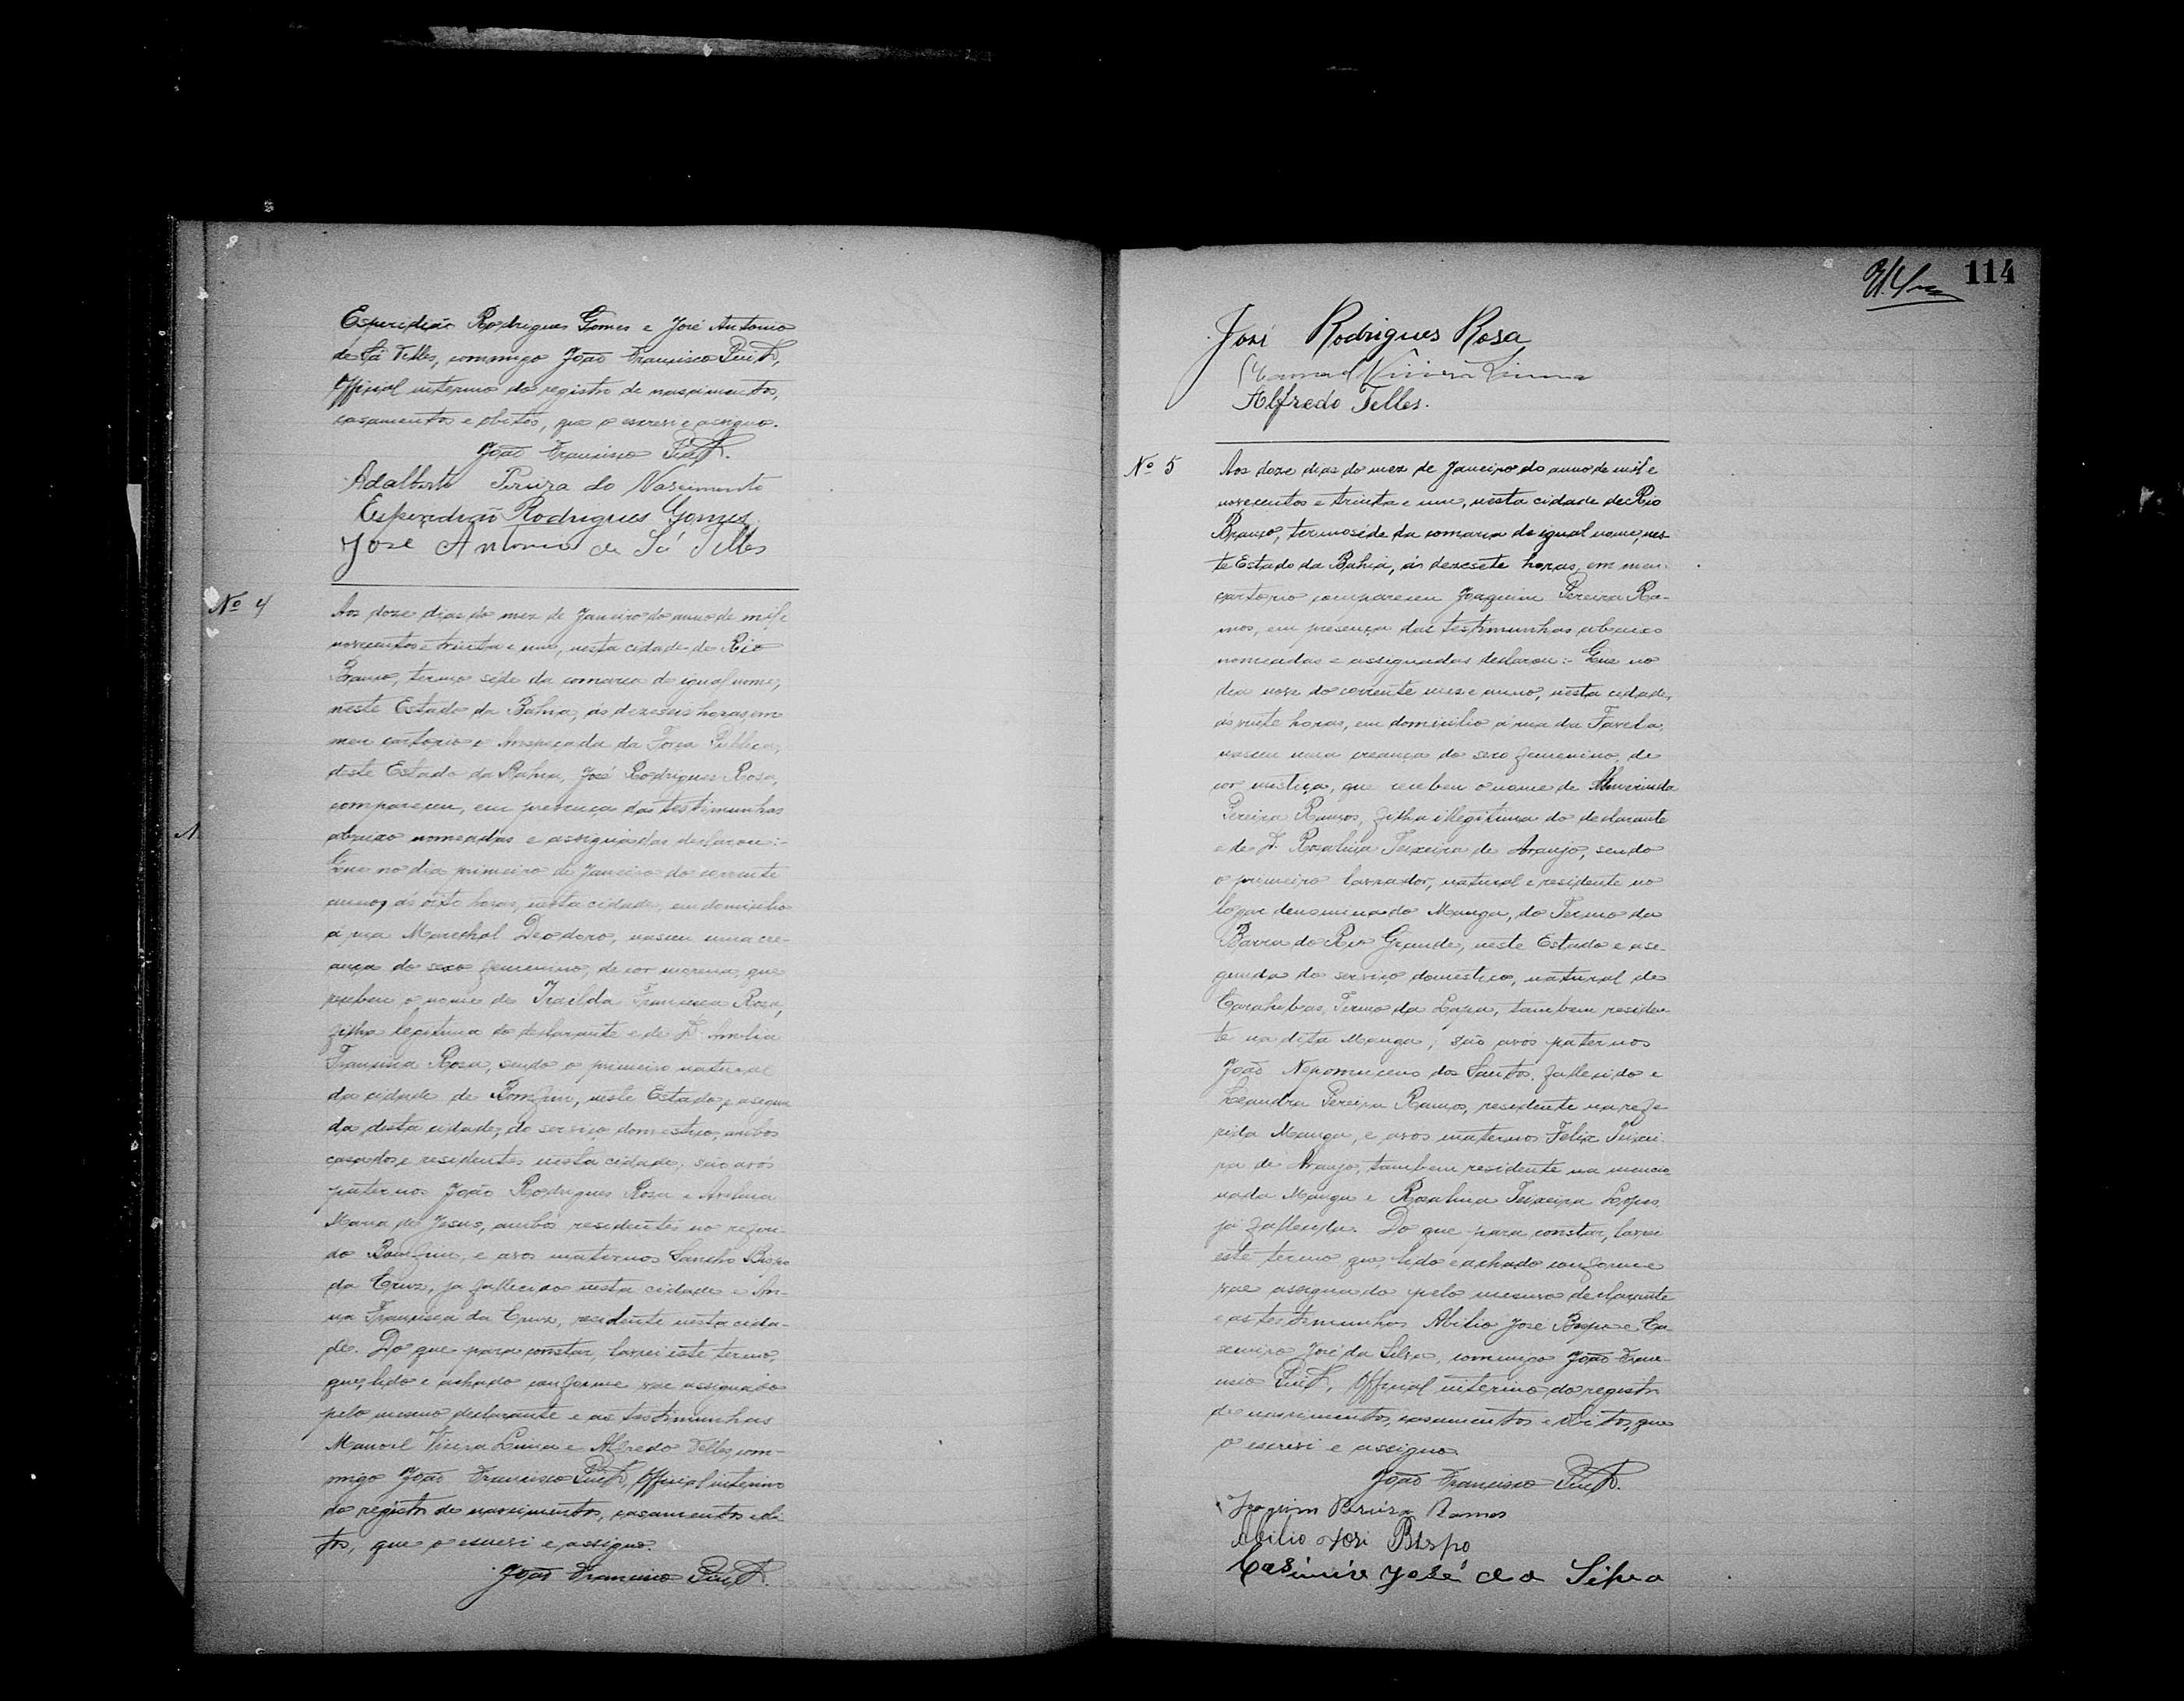 Esperidião Rodrigues Gomes e José Antonio
de Sá Telles, commigo João Francisco
Official interino do registro de nascimentos,
casamentos e obitos, que o escrevi e assigno.
João Francisco
Adalberto Pereira do Nascimento
Esperidião Rodrigues Gomes
José Antonio de Sá Telles
Nº 4
Aos doze dias do mez de Janeiro do anno de mil e
novecentos e trinta e um, nesta cidade de Rio
Branco, termo séde da comarca de igual nome,
neste Estado da Bahia, ás dezeseis horas, em
meu cartorio o Anspeçada da Força Publica,
deste Estado da Bahia, José Rodrigues Rosa,
compareceu, em presença das testimunhas
abaixo nomeadas e assignadas declarou:-
Que no dia primeiro de Janeiro do corrente
anno, ás oito horas, nesta cidade, em domicilio
á rua Marechal Deodoro, nasceu uma cre-
ança do sexo femenino, de cor morena, que
recebeu o nome de Irailda Francisca Rosa,
filha legitima do declarante e de D. Amelia
Francisca Rosa, sendo o primeiro natural
da cidade de Bomfim, neste Estado, e a segun
da desta cidade, do serviço domestico, ambos
casados e residentes nesta cidade; são avós
paternos João Rodrigues Rosa e Avelina
Maria de Jesus, ambos residentes no referi-
do Bomfim, e avos maternos Sancho Bispo
da Cruz, ja fallecido nesta cidade e An-
na Francisca da Cruz, residente nesta cida-
de. Do que para constar, lavrei este termo,
que, lido e achado conforme vae assignado
pelo mesmo declarante e as testimunhas
Manoel Vieira Lima e Alfredo Telles, com-
migo João Francisco Official interino
do registro de nascimentos, casamentos e obi-
tos, que o escrevi e assigno.
João Francisco
114
José Rodrigues Rosa
Manoel Vieira Lima
Alfredo Telles.
Nº 5
Aos doze dias do mez de Janeiro do anno de mil e
novecentos e trinta e um, nesta cidade de Rio
Branco, termo séde da comarca de igual nome, nes-
te Estado da Bahia, ás dezesete horas, em meu
cartorio compareceu Joaquim Pereira Ra-
mos, em presença das testimunhas abaixo
nomeadas e assignadas declarou:- Que no
dia nove do corrente mez e anno, nesta cidade,
ás vinte horas, em domicilio á rua da Favela,
nasceu uma creança do sexo femenino, de
cor mestiça, que recebeu o nome de Almerinda
Pereira Ramos, filha illegitima do declarante
e de D. Rosalina Teixeira de Araujo, sendo
o primeiro lavrador, natural e residente no
logar denominado Manga, do Termo da
Barra do Rio Grande, neste Estado e a se-
gunda do serviço domestico, natural de
Carahibas, Termo da Lapa, tambem residen-
te na dita Manga; são avós paternos
João Nepomuceno dos Santos, fallecido e
Leandra Pereira Ramos, residente na refe-
rida Manga, e avos maternos Felix Teixei-
ra de Araujo, tambem residente na mencio-
nada Manga e Rosalina Teixeira Lopes,
já fallecida. Do que para constar, lavrei
este termo que lido e achado conforme
vae assignado pelo mesmo declarante
e as testimunhas Abilio José Bispo e Ca-
semiro José da Silva, commigo João Fran-
cisco Official interino do registro
de nascimentos, casamentos e obitos, que
o escrevi e assigno.
João Francisco
Joaquim Pereira Ramos
Abilio José Bispo
Casimiro José da Silva